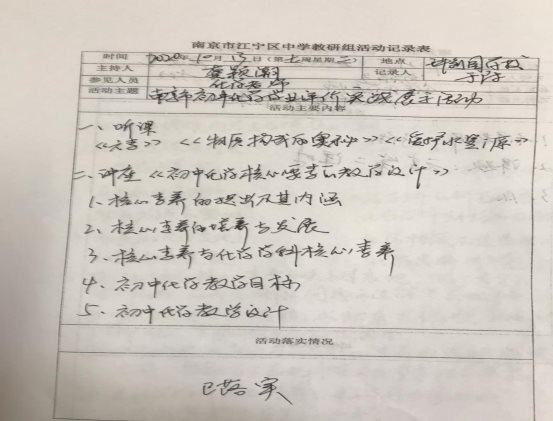 南京市江宁区中学教研组活动记录表
时间 2020年10月13日（第七周星期二） 地点
主持人 记录人
参见人员 化学老师
活动主题 南京市初中化学学业评价实践展示活动
活动主要内容
一、听课
《元素》《物质构成的奥秘》《爱护水资源》
二、讲座《初中化学核心素养与教学设计》
1、核心素养的提出及其内涵
2、核心素养的培养与发展
3、核心素养与化学学科核心素养
4、初中化学教学目标
5、初中化学教学设计
活动落实情况
已落实